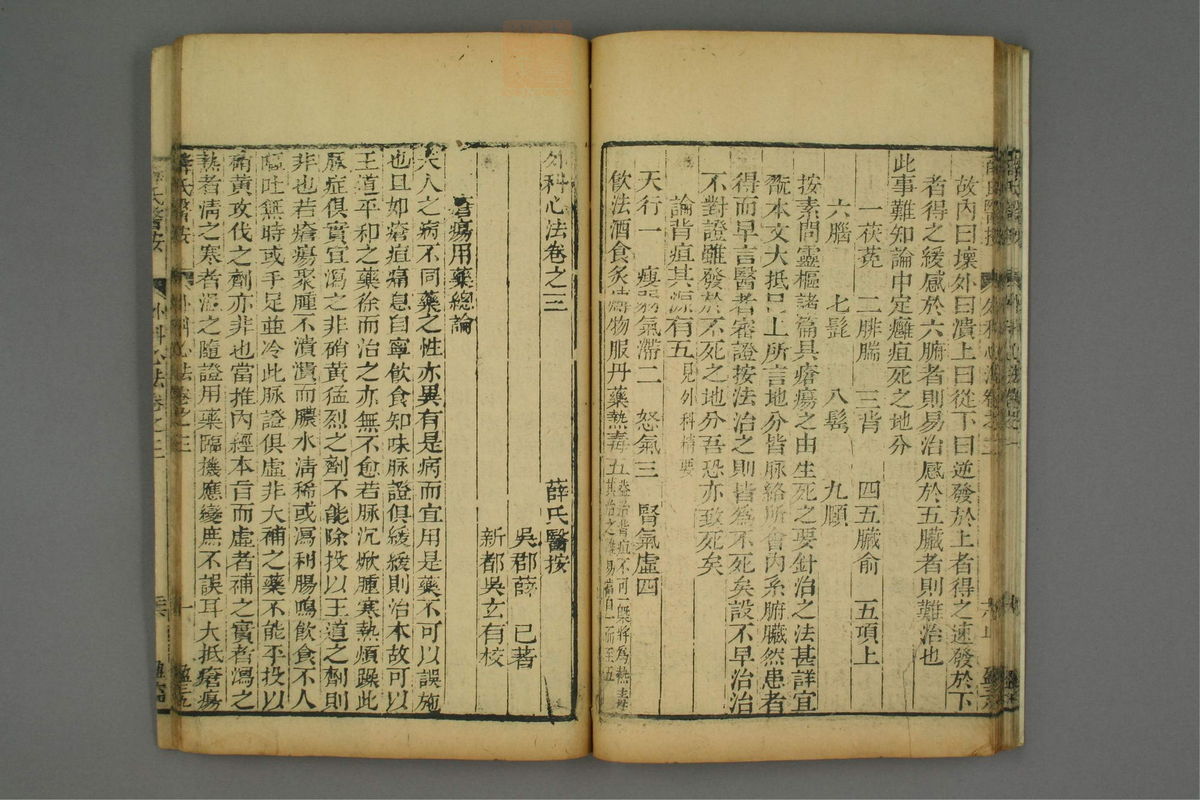 故內曰壞外曰潰上曰從下曰逆發於上者得之速發於下
者得之緩感於六腑者則易治感於五臟者則難治也
此事難知論申定癰疽死之地分
一茯菟 二腓腨 三背 四五臟俞 五項上
六腦 七髭 八鬂 九頤
按素問靈樞諸篇具瘡瘍之由生死之要針治之法甚詳宜
翫本文大抵已上所言地分皆脉絡所會內系腑臟然患者
得而早言醫者審證按法治之則皆為不死矣設不早治治
不對證雖發於不死之地分吾恐亦致死矣
論背疽其源有五見外科精要
天行一 瘦弱氣滯二 怒氣三 腎氣虛四
飲法酒食炙煿物服丹藥熱毒五蓋治背疽不可一槩將為熱毒
其治之難易當自一而至五
外科心法卷之三 薛氏醫按
吳郡薛 已著
新都吳玄有校
瘡瘍用藥總論
夫人之病不同藥之性亦異有是病而宜用是藥不可以誤施
也且如瘡疽痛息自寧飲食知味脉證俱緩緩則治本故可以
王道平和之藥徐而治之亦無不愈若脉沉㷸腫寒熱煩躁此
脉症俱實宜瀉之非硝黃猛烈之劑不能除投以王道之劑則
非也若瘡瘍聚腫不潰潰而膿水清稀或瀉利腸鳴飲食不入
嘔吐無時或手足並冷此脉證俱虛非大補之藥不能平投以
硝黃攻伐之劑亦非也當推內經本旨而虛者補之實者瀉之
熱者清之寒者溫之隨證用藥臨機應變庶不誤耳大抵瘡瘍
薛氏醫按 外科心法卷之三 一